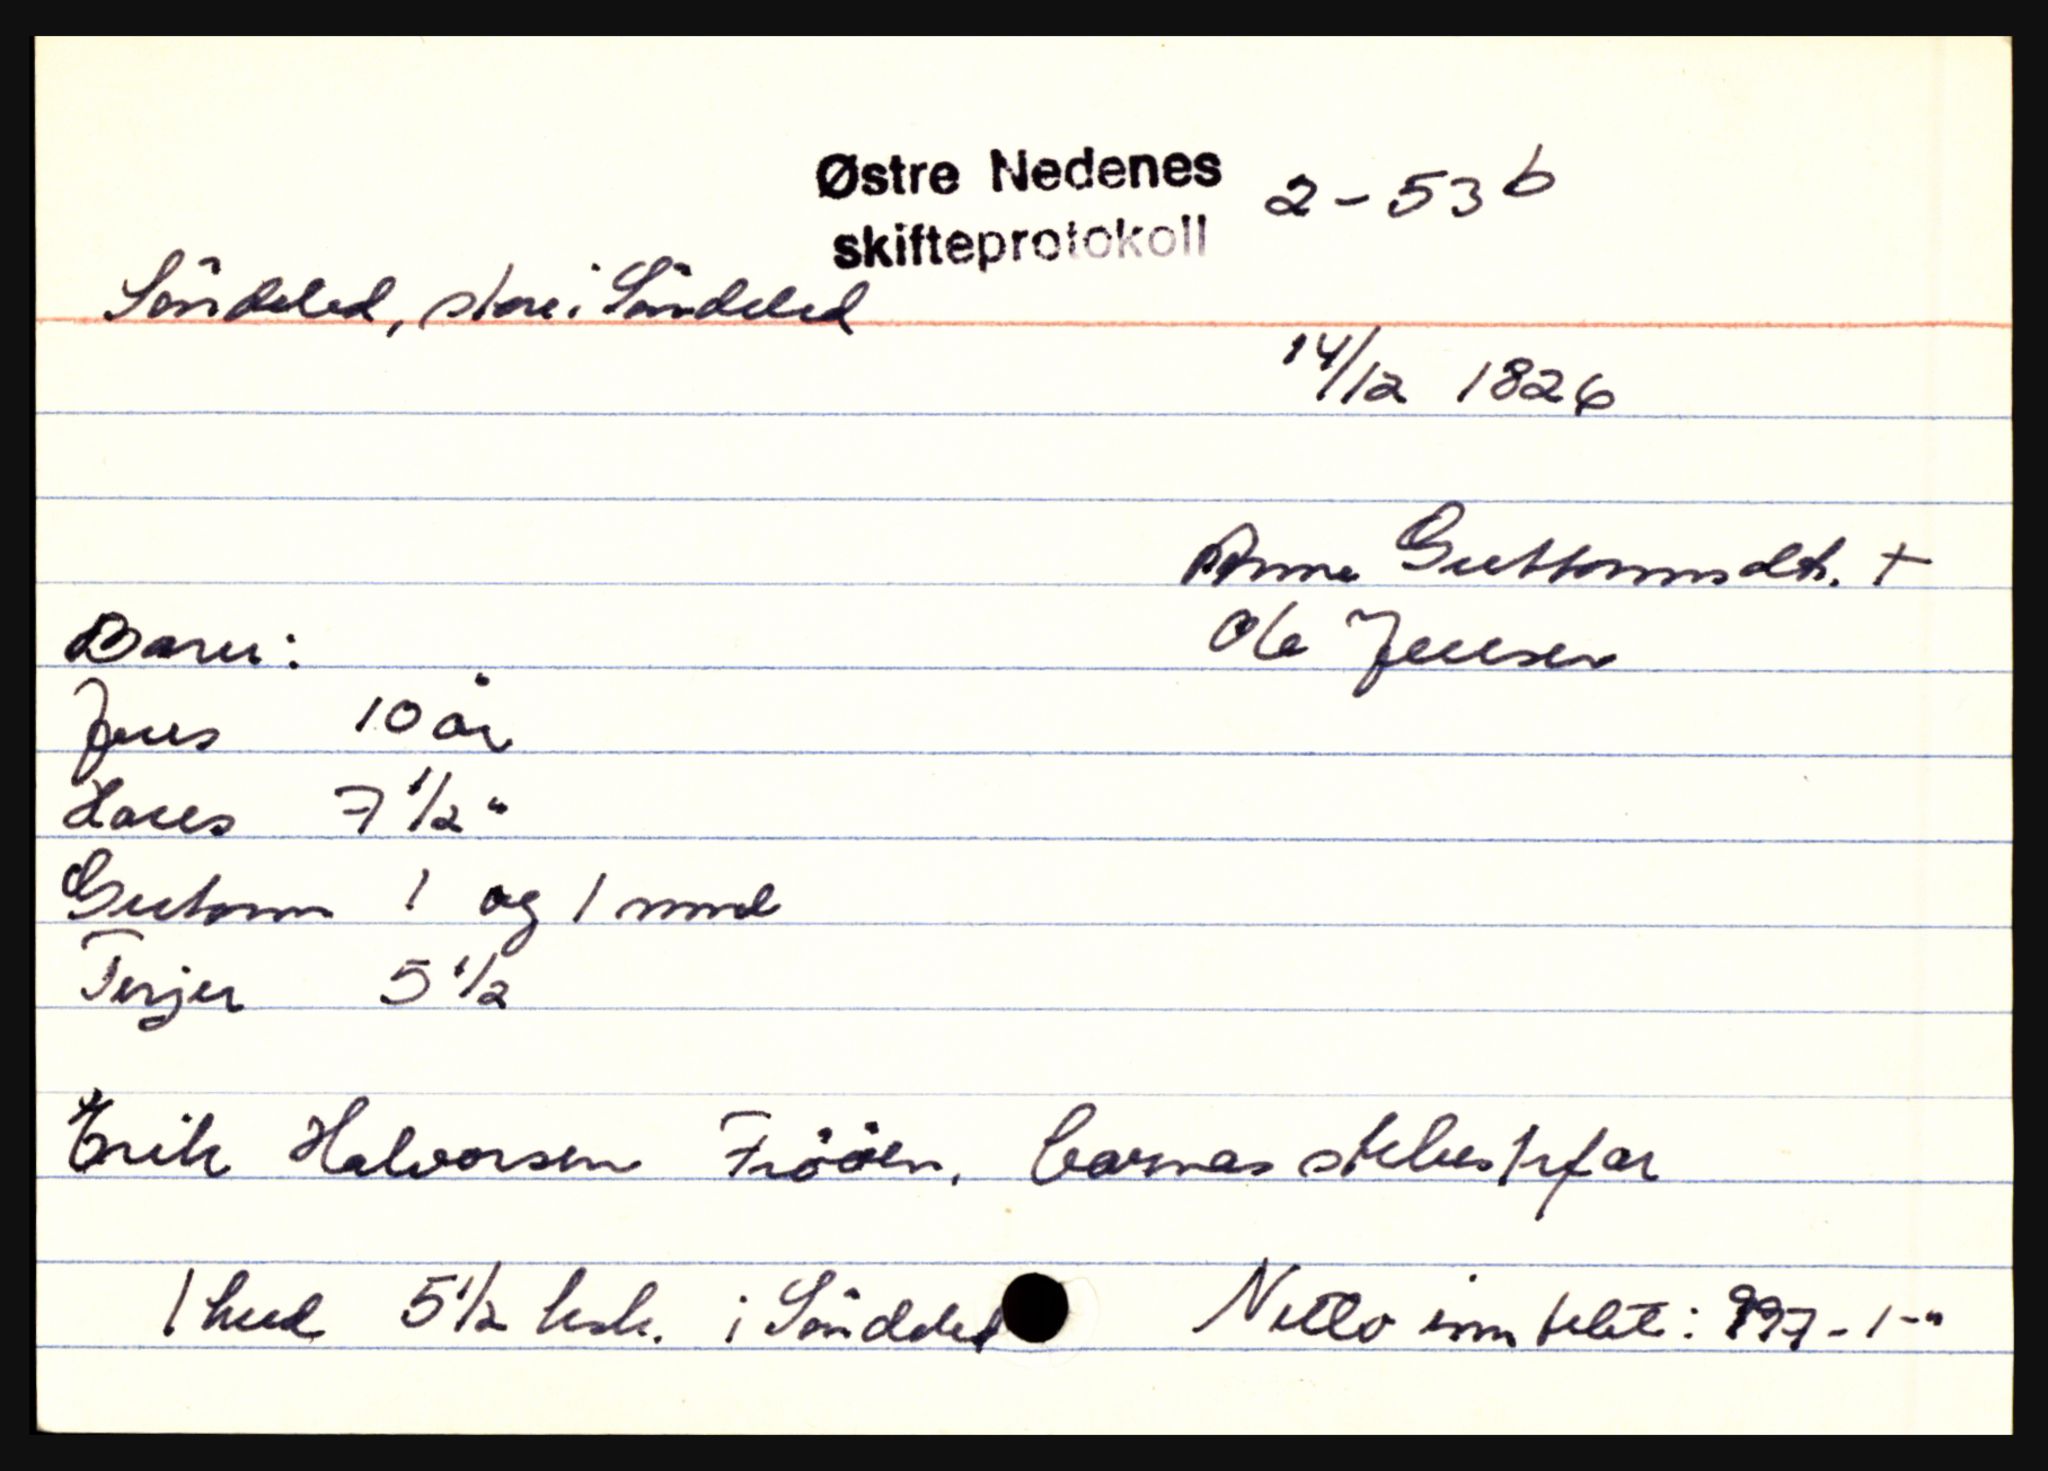 Østre Nedenes 2-53 b
skifteprotokoll
Söndeled, store i Söndeled
14/12 1826
Anne Guttormsdtr. +
Ole Jensen
Barn:
Jens 10 år
Hans 7 1/2 "
Guttorm 1 og 1 mnd
Terjer 5 1/2
Erik Halvorsen Frööen, barnas stebestefar
1 hud 5 1/2 ksk. i Söndeled Netto innbetalt: 997-1-"